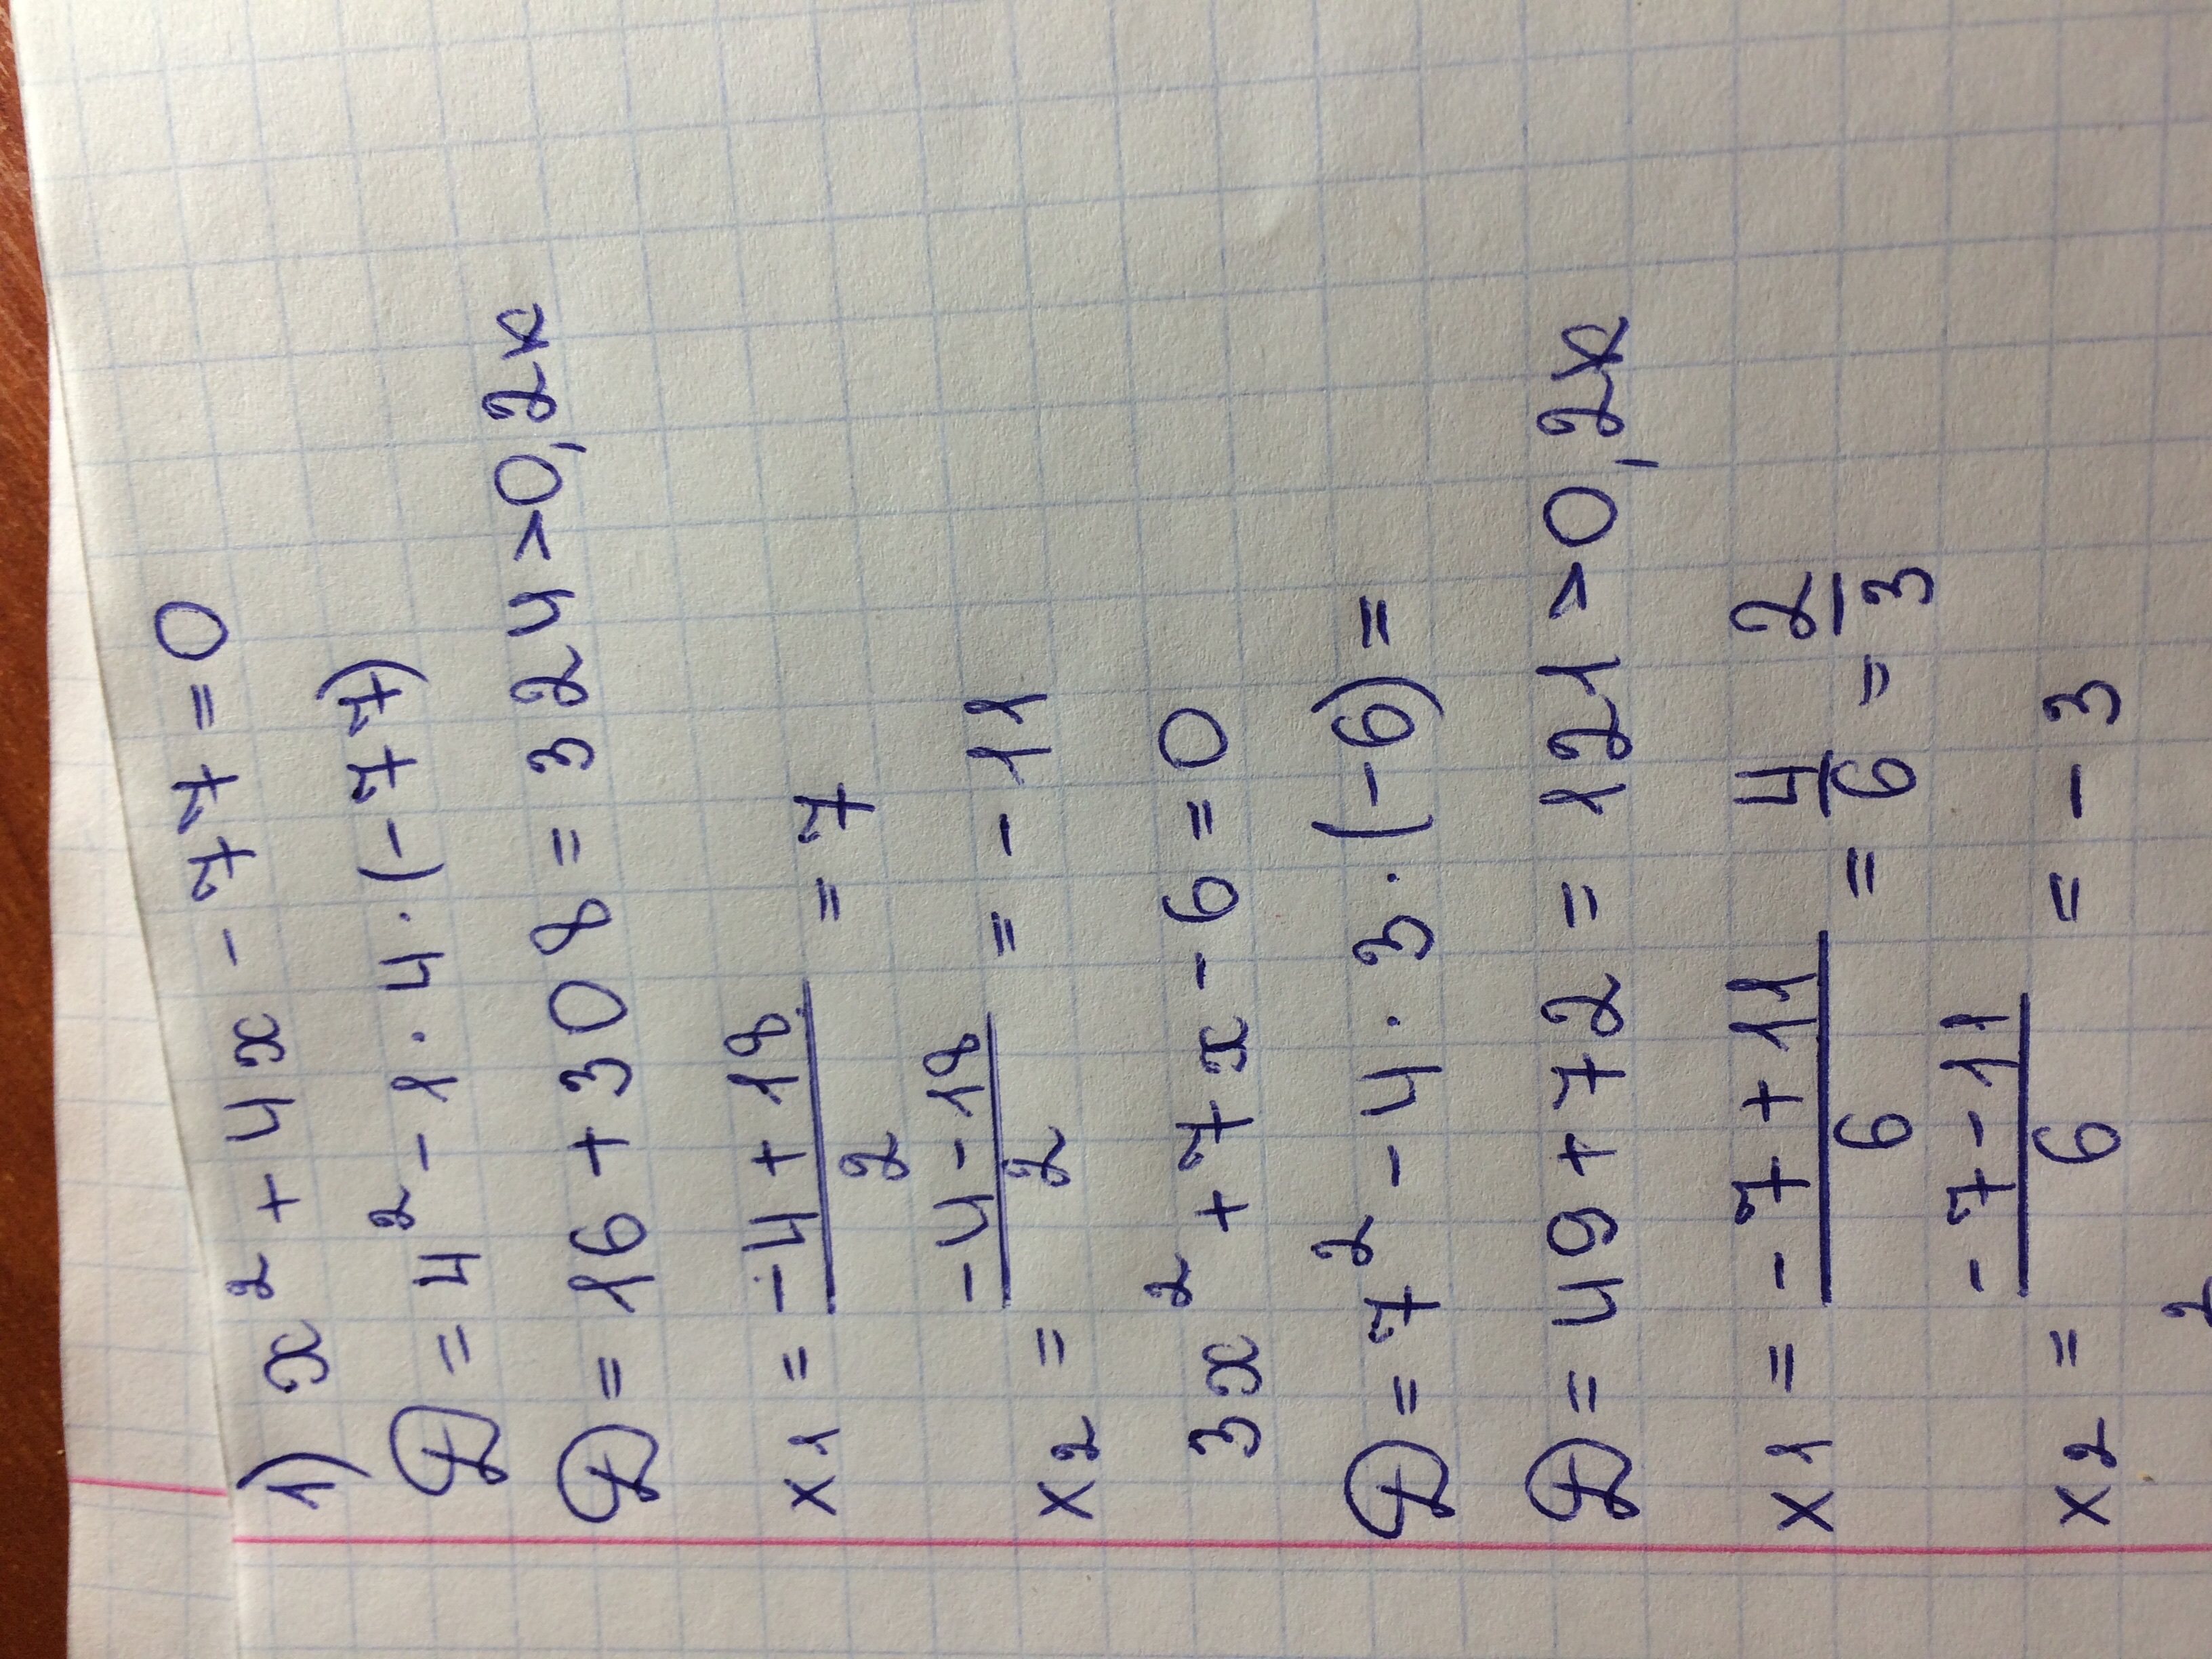 1) x² + 4x - 77 = 0
D = 4² - 1 · 4 · (-77)
D = 16 + 308 = 324 > 0, 2к
x1 = (-4 + 18)/2 = 7
x2 = (-4 - 18)/2 = -11
3x² + 7x - 6 = 0
D = 7² - 4 · 3 · (-6) =
D = 49 + 72 = 121 > 0, 2к
x1 = (-7 + 11)/6 = 4/6 = 2/3
x2 = (-7 - 11)/6 = -3